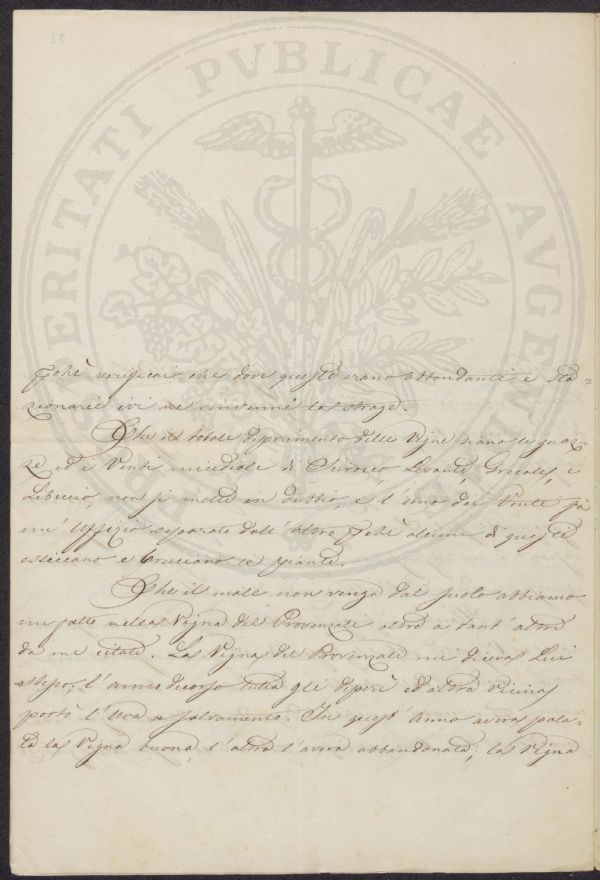 PROSPERITATI PVBLICAE AVGENDAE
22
che verificai che dove queste erano abbondanti e sta-
zionarie ivi ne rinvenni la strage.
Che il totale deperimento delle Vigne siano le guaz-
ze ed i Venti micidiali di Scirocco Levante, Grecale, e
Libeccio, non si mette in dubbio, e l'uno dei Venti fà
un' Uffizio separato dall' altro che alcuni di questi
essiccano e bruciano le piante.
Che il male non venga dal suolo abbiamo
un fatto nella Vigna del Provenzale altre a tant' altre
da me citate. La Vigna del Provenzale mi diceva Lui
stesso, l'anno decorso tutta gli deperì ed altra vicina
portò l'Uva a salvamento. In quest' anno aveva pala-
ta la Vigna buona, e l'altra l'aveva abbandonata; la Vigna